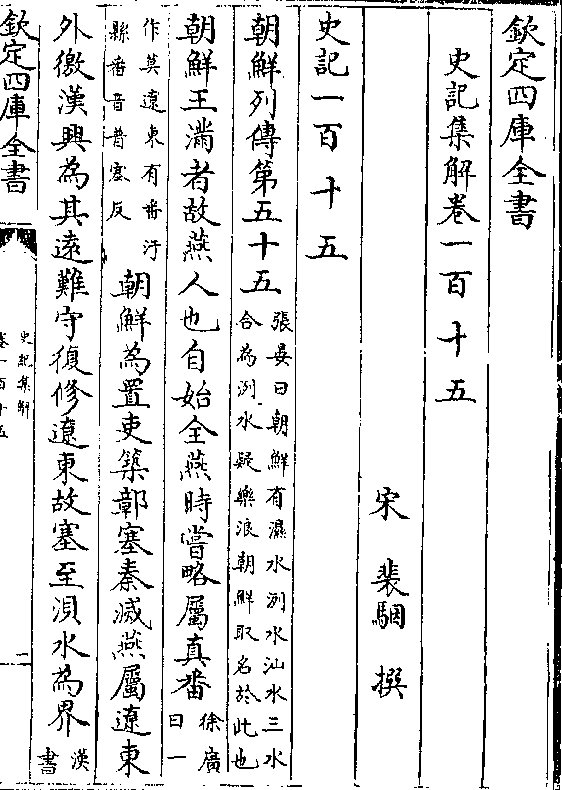 欽定四庫全書
史記集解卷一百十五
宋 裴駰 撰
史記一百十五
朝鮮列傳第五十五
張晏曰朝鮮有濕水洌水汕水三水
合為洌水疑樂浪朝鮮取名於此也
朝鮮王滿者故燕人也自始全燕時嘗略屬真番
徐廣
曰一
作莫遼東有番汗
縣番音普寒反
朝鮮為置吏築鄣塞秦滅燕屬遼東
外徼漢興為其遠難守復修遼東故塞至浿水為界
漢
書
欽定四庫全書
史記集解
卷一百十五
一